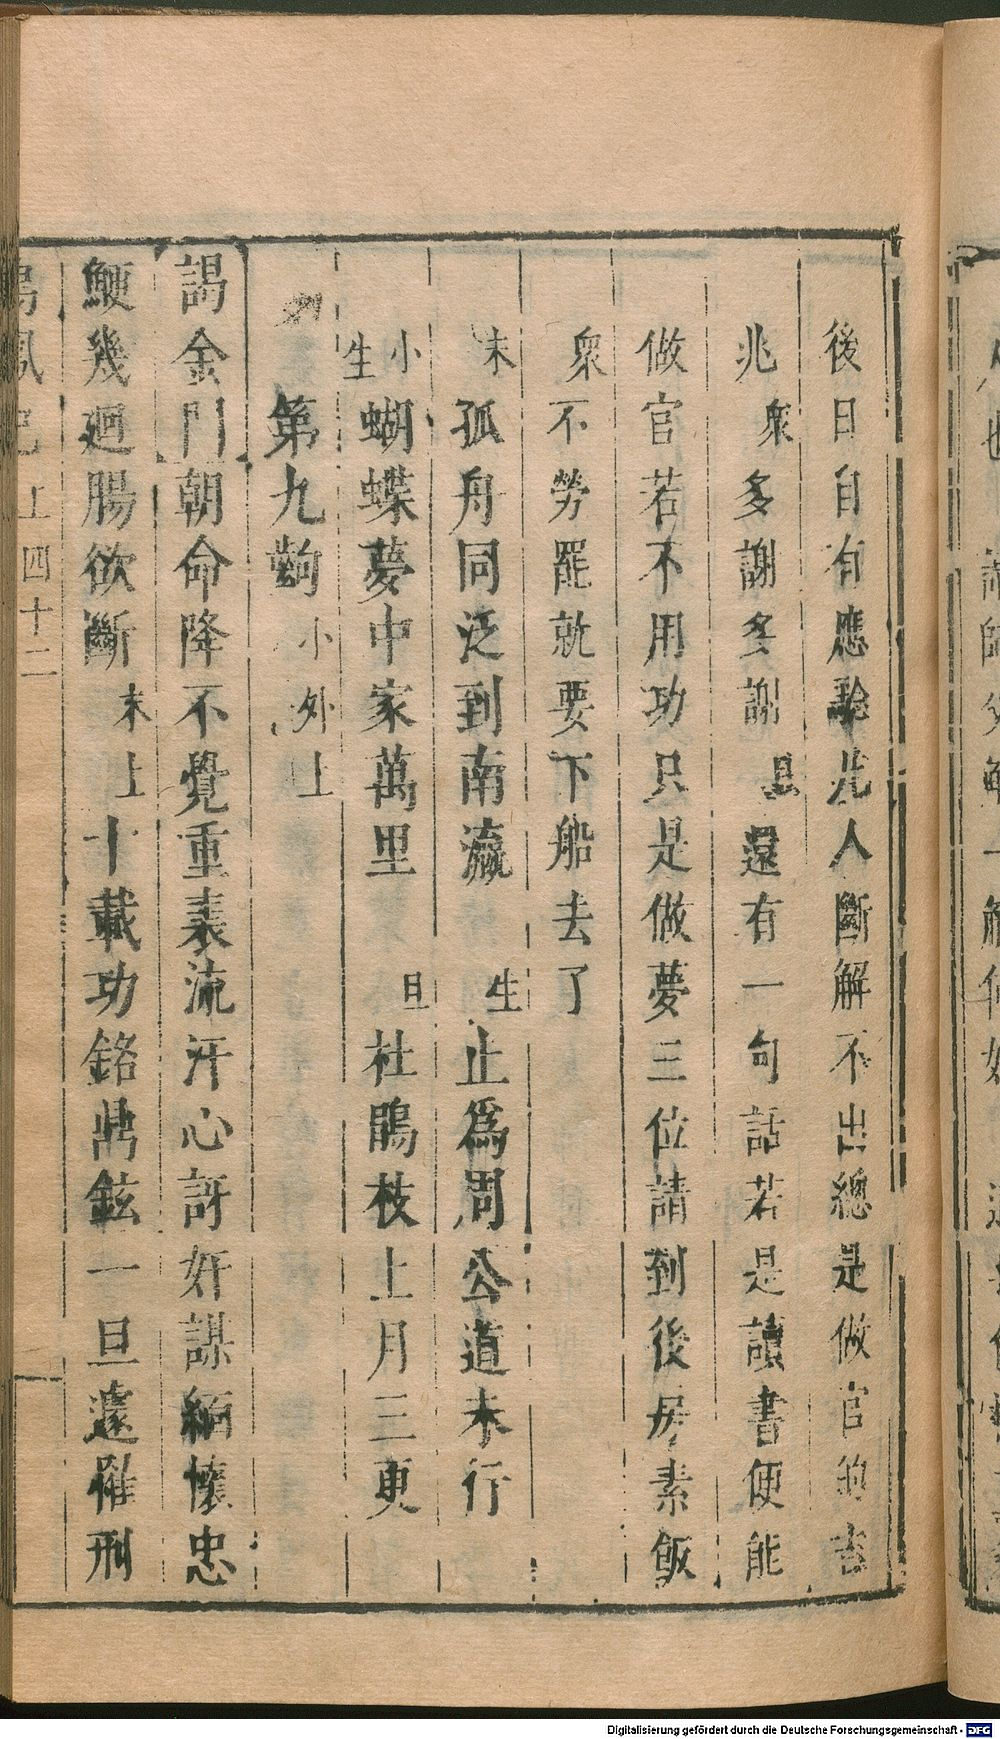 後日自有應驗先人斷解不出總是做官的吉
兆衆多謝多謝旦還有一句話若是讀書便能
做官若不用功只是做夢三位請到後房素飯
衆不勞罷就要下船去了
末孤舟同泛到南瀛生止爲周公道未行
小生蝴蝶夢中家萬里旦杜鵑枝上月三更
第九齣小外上
謁金門朝命降不覺重裘流汗心訝奸謀緬懷忠
鯁幾廻腸欲斷末上十載功銘鼎鉉一旦遽罹刑
鳳 上 四十二
Digitalisierung gefördert durch die Deutsche Forschungsgemeinschaft - DFG